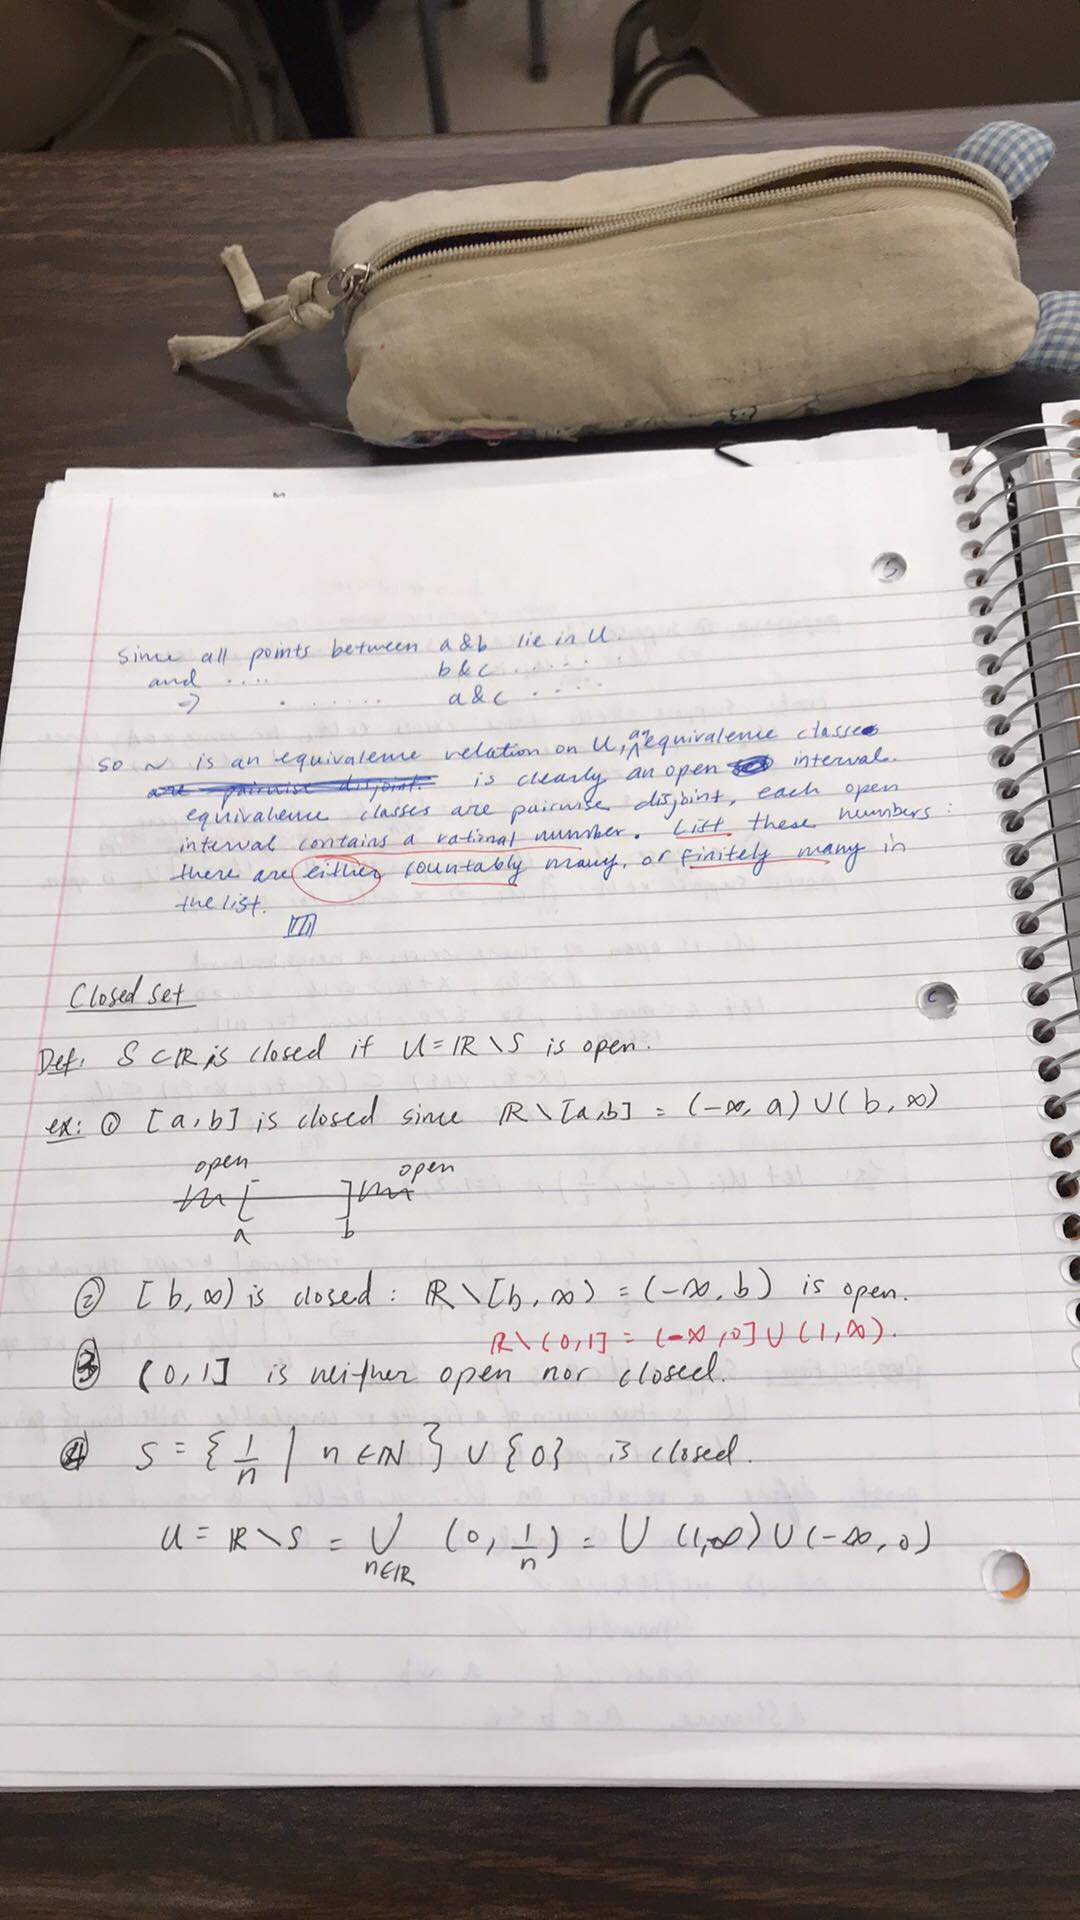 Since all points between a & b lie in U.
and .... b & c ......
⇒ . ...... a & c ....
So ~ is an equivalence relation on U, an equivalence classes
are pairwise disjoint. is clearly an open interval.
equivalence classes are pairwise disjoint, each open
interval contains a rational number. List these numbers:
there are either countably many, or finitely many in
the list.
Closed set
Def: S ⊂ ℝ is closed if U = ℝ \ S is open.
ex: ① [a, b] is closed since ℝ \ [a,b] = (-∞, a) ∪ (b, ∞)
open open
a b
② [b, ∞) is closed : ℝ \ [b, ∞) = (-∞, b) is open.
ℝ \ (0,1] = (-∞, 0] ∪ (1, ∞).
③ (0, 1] is neither open nor closed.
④ S = { 1/n | n ∈ ℕ } ∪ {0} is closed.
U = ℝ \ S = ∪ (0, 1/n) = ∪ (1, ∞) ∪ (-∞, 0)
n∈ℝ